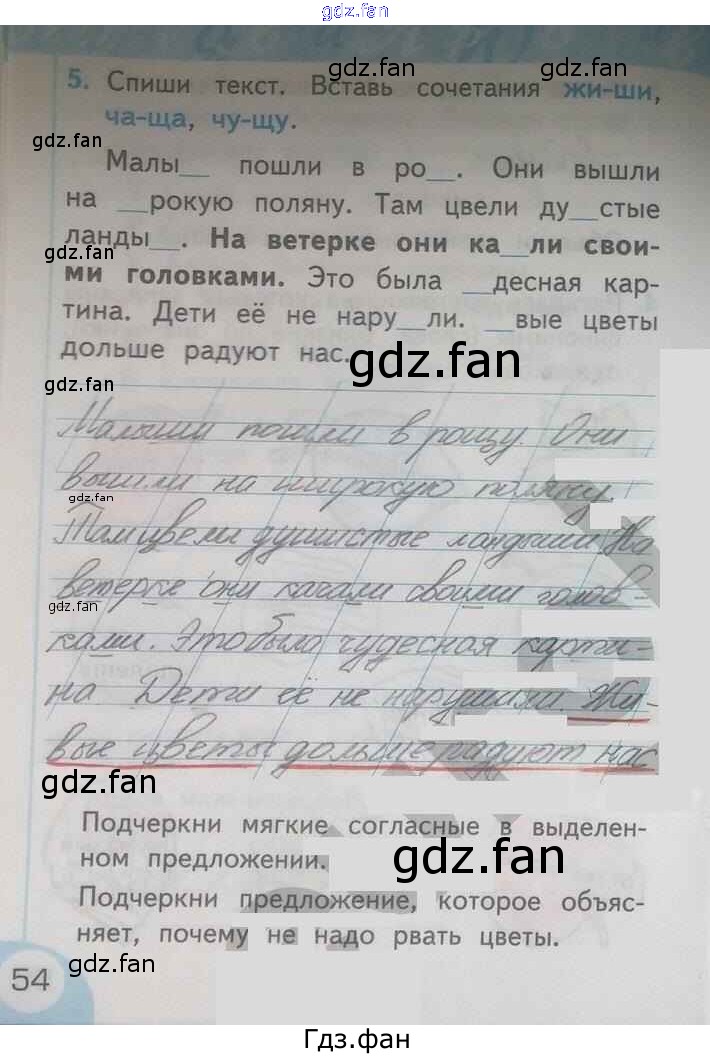 gdz.fan
gdz.fan
5. Спиши текст. Вставь сочетания жи-ши,
ча-ща, чу-щу.
gdz.fan
Малы__ пошли в ро__. Они вышли
gdz.fan
на __рокую поляну. Там цвели ду__стые
ланды__. На ветерке они ка__ли свои-
gdz.fan
ми головками. Это была __десная кар-
тина. Дети её не нару__ли. __вые цветы
дольше радуют нас.
gdz.fan
gdz.fan
Малыши пошли в рощу. Они
вышли на широкую поляну.
gdz.fan
Там цвели душистые ландыши На
ветерке они качали своими голов-
gdz.fan
ками. Это была чудесная карти-
на Дети её не нарушили. Жи-
вые цветы дольше радуют нас
gdz.fan
gdz.fan
Подчеркни мягкие согласные в выделен-
ном предложении.
gdz.fan
Подчеркни предложение, которое объяс-
няет, почему не надо рвать цветы.
gdz.fan
gdz.fan
54
Гдз.фан